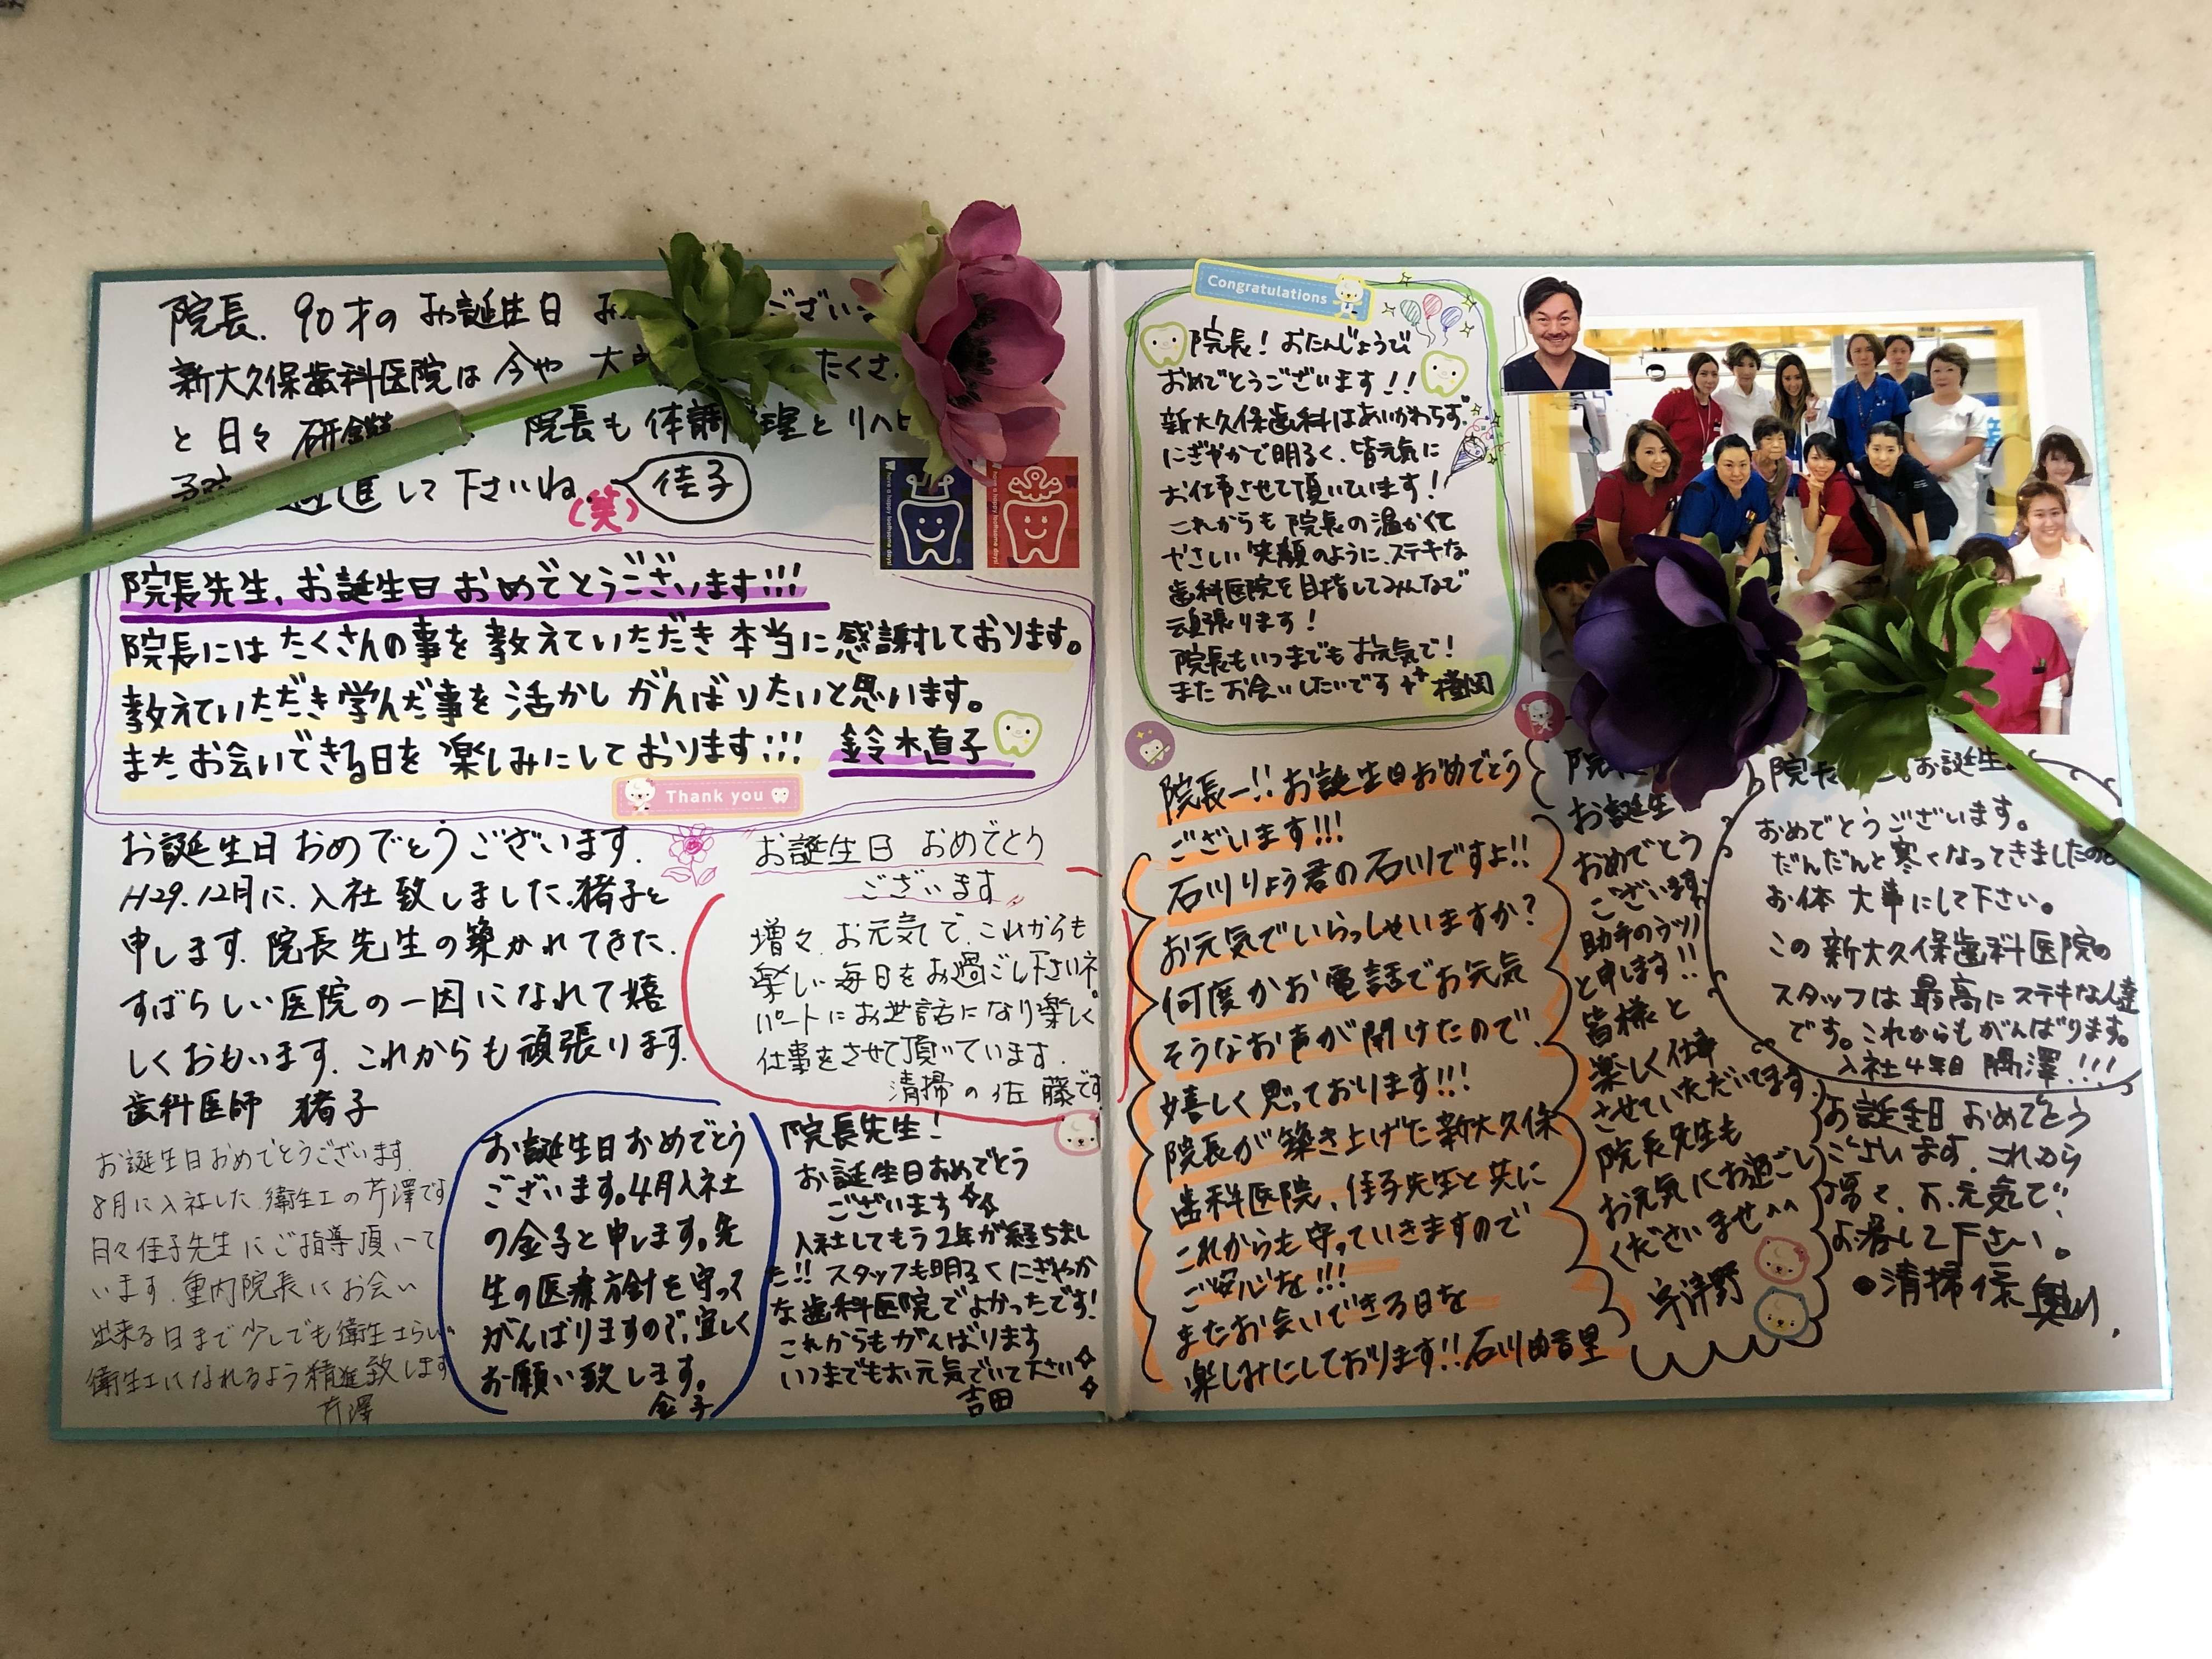 院長、90才の お誘生日
新大久保歯科医院は 今や
と 日々 研鑽 院長も 体調 リハビ
進して下さいね (笑) 佳子
have a happy toothsome days!
have a happy toothsome days!
院長先生、お誕生日 おめでとうございます!!!
院長には たくさんの事を 教えていただき 本当に 感謝しております。
教えていただき 学んだ事を 活かし がんばりたいと思います。
また お会いできる日を 楽しみにしております!!! 鈴木直子
Thank you
お誕生日 おめでとうございます.
H29.12月に、入社 致しました、猪子と
申します. 院長先生の築かれてきた.
すばらしい医院の一因になれて嬉
しくおもいます. これからも頑張ります.
歯科医師 猪子
お誕生日 おめでとう
ございます
増々、お元気で、これからも
楽しい毎日をお過ごし下さいネ
パートにお世話になり楽しく
仕事をさせて頂いています.
清掃の佐藤です
お誕生日おめでとうございます.
8月に入社した、衛生士の芹澤です
日々佳子先生にご指導頂いて
います. 重内院長にお会い
出来る日まで少しでも衛生士らしい
衛生士になれるよう精進致します
芹澤
お誕生日おめでとう
ございます。4月入社
の金子と申します。先
生の医療方針を守って
がんばりますので、宜しく
お願い致します。
金子
院長先生!
お誕生日おめでとう
ございます
入社してもう2年が経ちまし
た!! スタッフも明るくにぎやか
な歯科医院でよかったです!
これからもがんばります
いつまでもお元気でいて下さい
吉田
Congratulations
院長! おたんじょうび
おめでとうございます!!
新大久保歯科はあいかわらず
にぎやかで明るく、皆元気に
お仕事させて頂いています!
これからも 院長の温かくて
やさしい 笑顔のように、ステキな
歯科医院を目指してみんなで
頑張ります!
院長もいつまでもお元気で!
また お会いしたいです
院長ー!! お誕生日おめでとう
ございます!!!
石川りょう君の石川ですよ!!
お元気でいらっしゃいますか?
何度かお電話でお元気
そうなお声が聞けたので、
嬉しく思っております!!!
院長が築き上げた新大久保
歯科医院、佳子先生と共に
これからも守っていきますので
ご安心を!!!
またお会いできる日を
楽しみにしております!! 石川由香里
お誕生
おめでとう
ございます。
助手のウツノ
と申します!!
皆様と
楽しく仕事
させていただいてます.
院長先生も
お元気にお過ごし
くださいませ^^
宇津野
院長 お誕生
おめでとうございます。
だんだんと寒くなってきましたので
お体 大事にして下さい。
この 新大久保歯科医院の
スタッフは 最高に ステキな人達
です。これからもがんばります。
入社4年目 隅澤!!!
お誕生日 おめでとう
ございます. これから
お元気で
下さい。
●清掃係 奥山